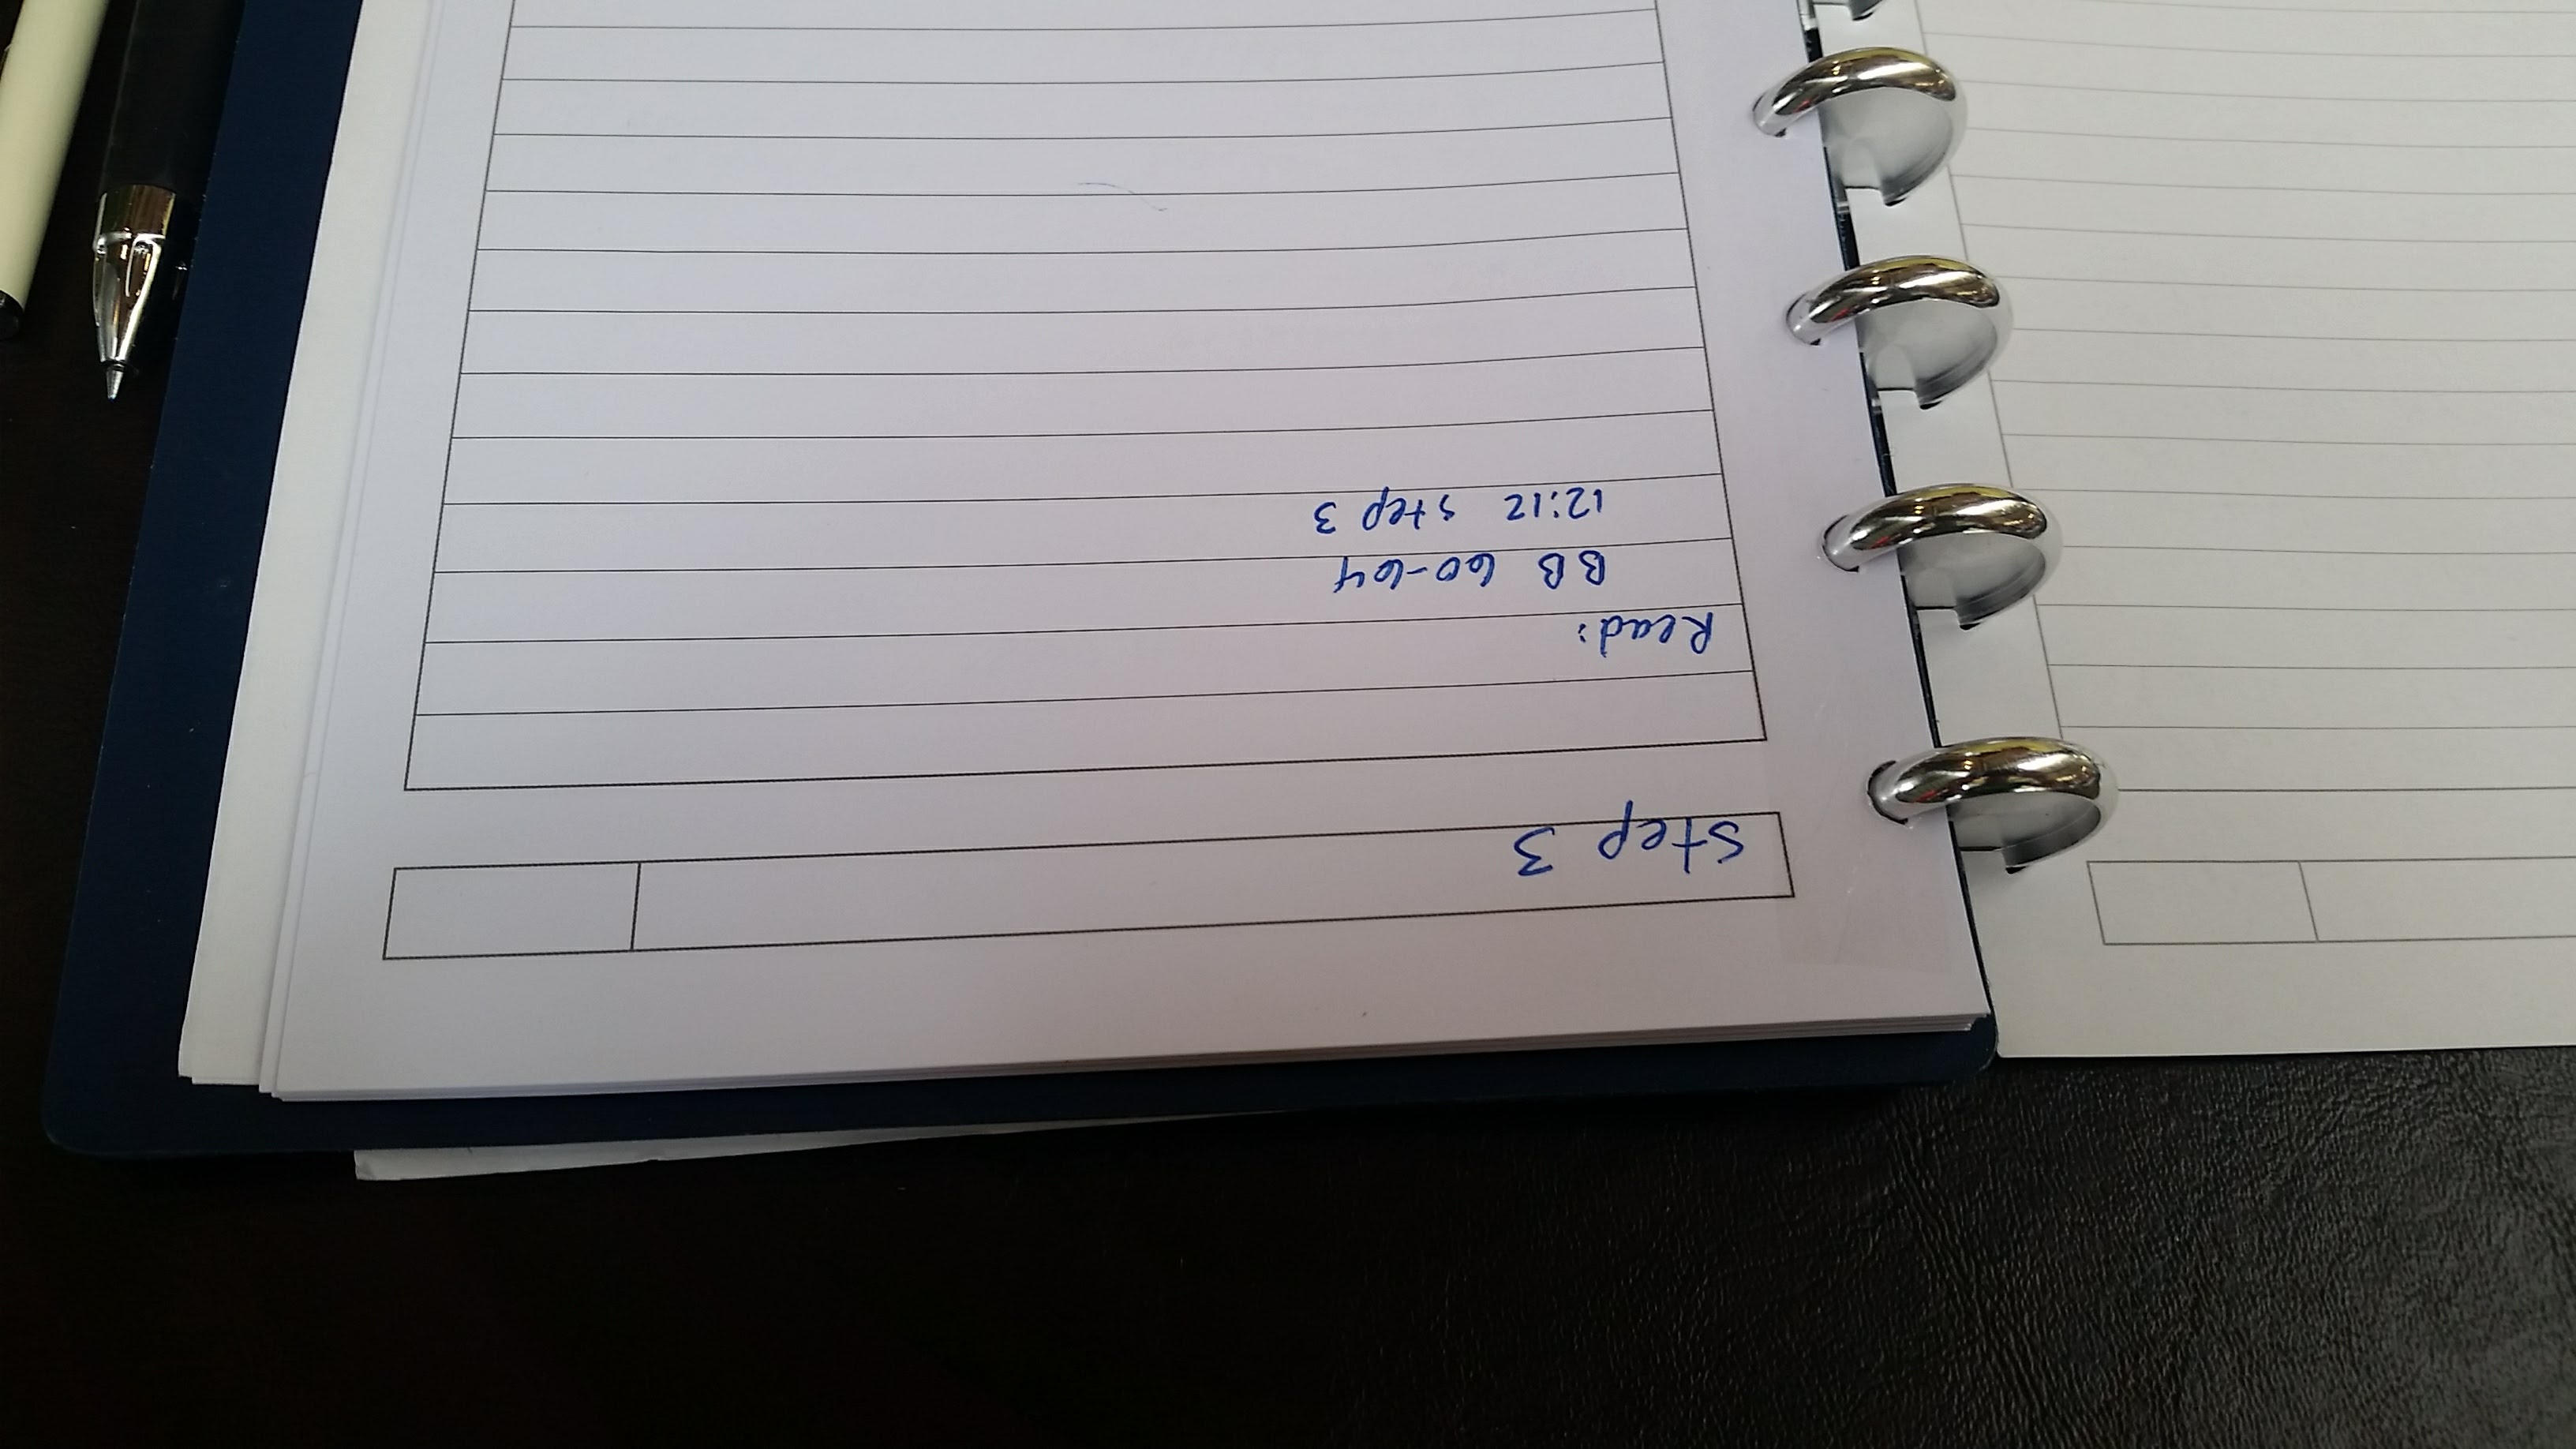 Step 3
Read:
BB 60-64
12:12 Step 3